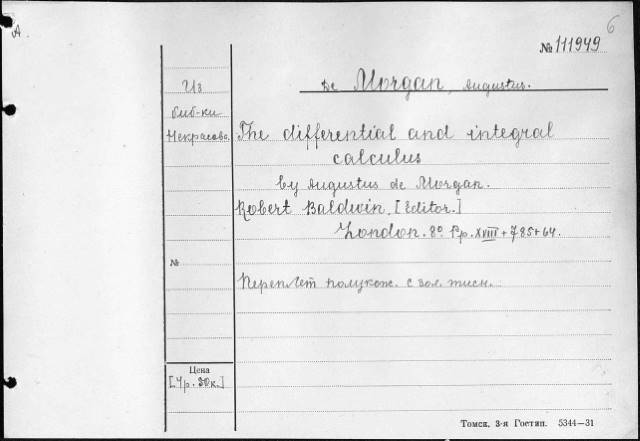 6
A.
№ 111949
Из
биб-ки
Некрасова.
De Morgan, Augustus.
The differential and integral
calculus
by Augustus de Morgan.
Robert Baldwin, [Editor.]
London. 8º. Pp. XVIII + 785 + 64.
№
Переплет полукож. с зол. тисн.
Цена
[4р. 30к.]
Томск, 3-я Гостип. 5344—31